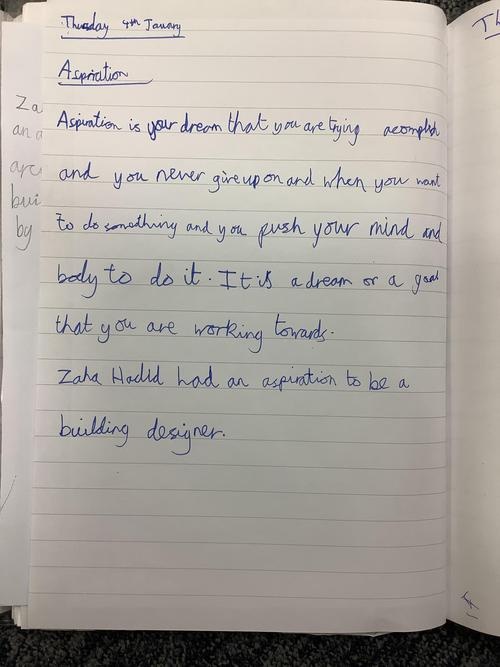 Thursday 4th January
Aspriation
Aspiration is your dream that you are trying acomplish
and you never give up on and when you want
to do something and you push your mind and
body to do it. It is a dream or a goal
that you are working towards.
Zaha Hadid had an aspiration to be a
building designer.
Za
an a
arc
bui
by
Th